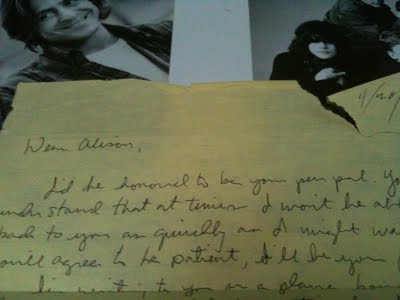 11/20/
Dear Alison,
I'd be honored to be your pen pal. Yo
understand that at times I won't be abl
back to you as quickly as I might wa
you'll agree to be patient, I'll be your
I'm writing to you on a plane